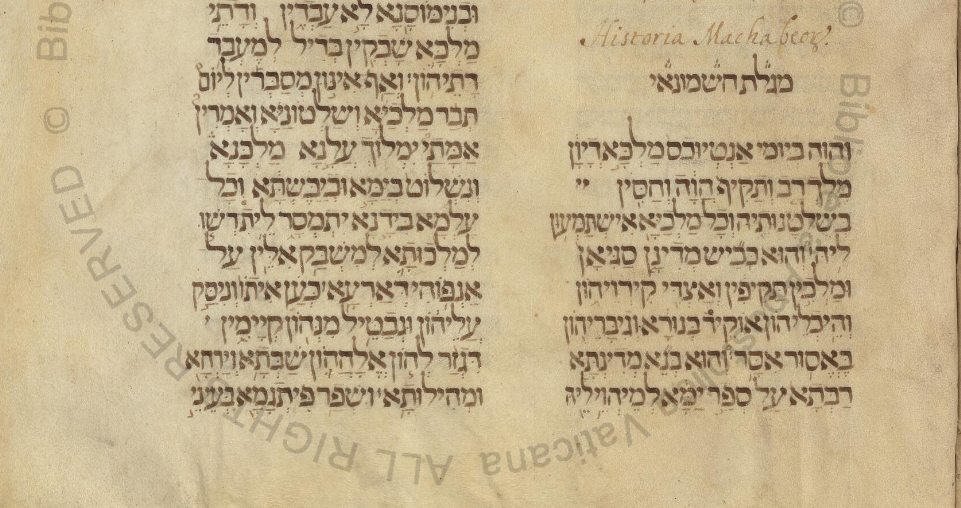 Historia Machabeor.
מגלת חשמונאי
והוה ביומי אנטיוכס מלכא דיון
מלך רב ותקיף הוה וחסין יי
בשלטנותיה וכל מלכיא אישתמעון
ליה והוא כביש מדינן סגיאן
ומלכין תקיפין ואצדי קירויהון
והיכליהון אוקיד בנורא וגיבריהון
באסור אסר והוא בנא מדינתא
רבתא על ספר ימא למיהוי ליה
ובנימוסנא לא עבדין ודתי
מלכא שבקין בדיל למעבד
דתיהון ואף אינון מסברין ליום
תבר מלכיא ושלטוניא ואמרין
אמתי ימלוך עלנא מלכנא
ונשלוט בימא וביבשתא וכל
עלמא בידנא יתמסר לית דשו
למלכותא למשבק אלין על
אנפוהי דארעא כען איתו וניסק
עליהון ונבטיל מנהון קיימין
דגזר להון אלההון שבתא וירחא
ומהילותא ושפר פיתגמא בעיני
© Biblioteca Apostolica Vaticana ALL RIGHTS RESERVED © Bib